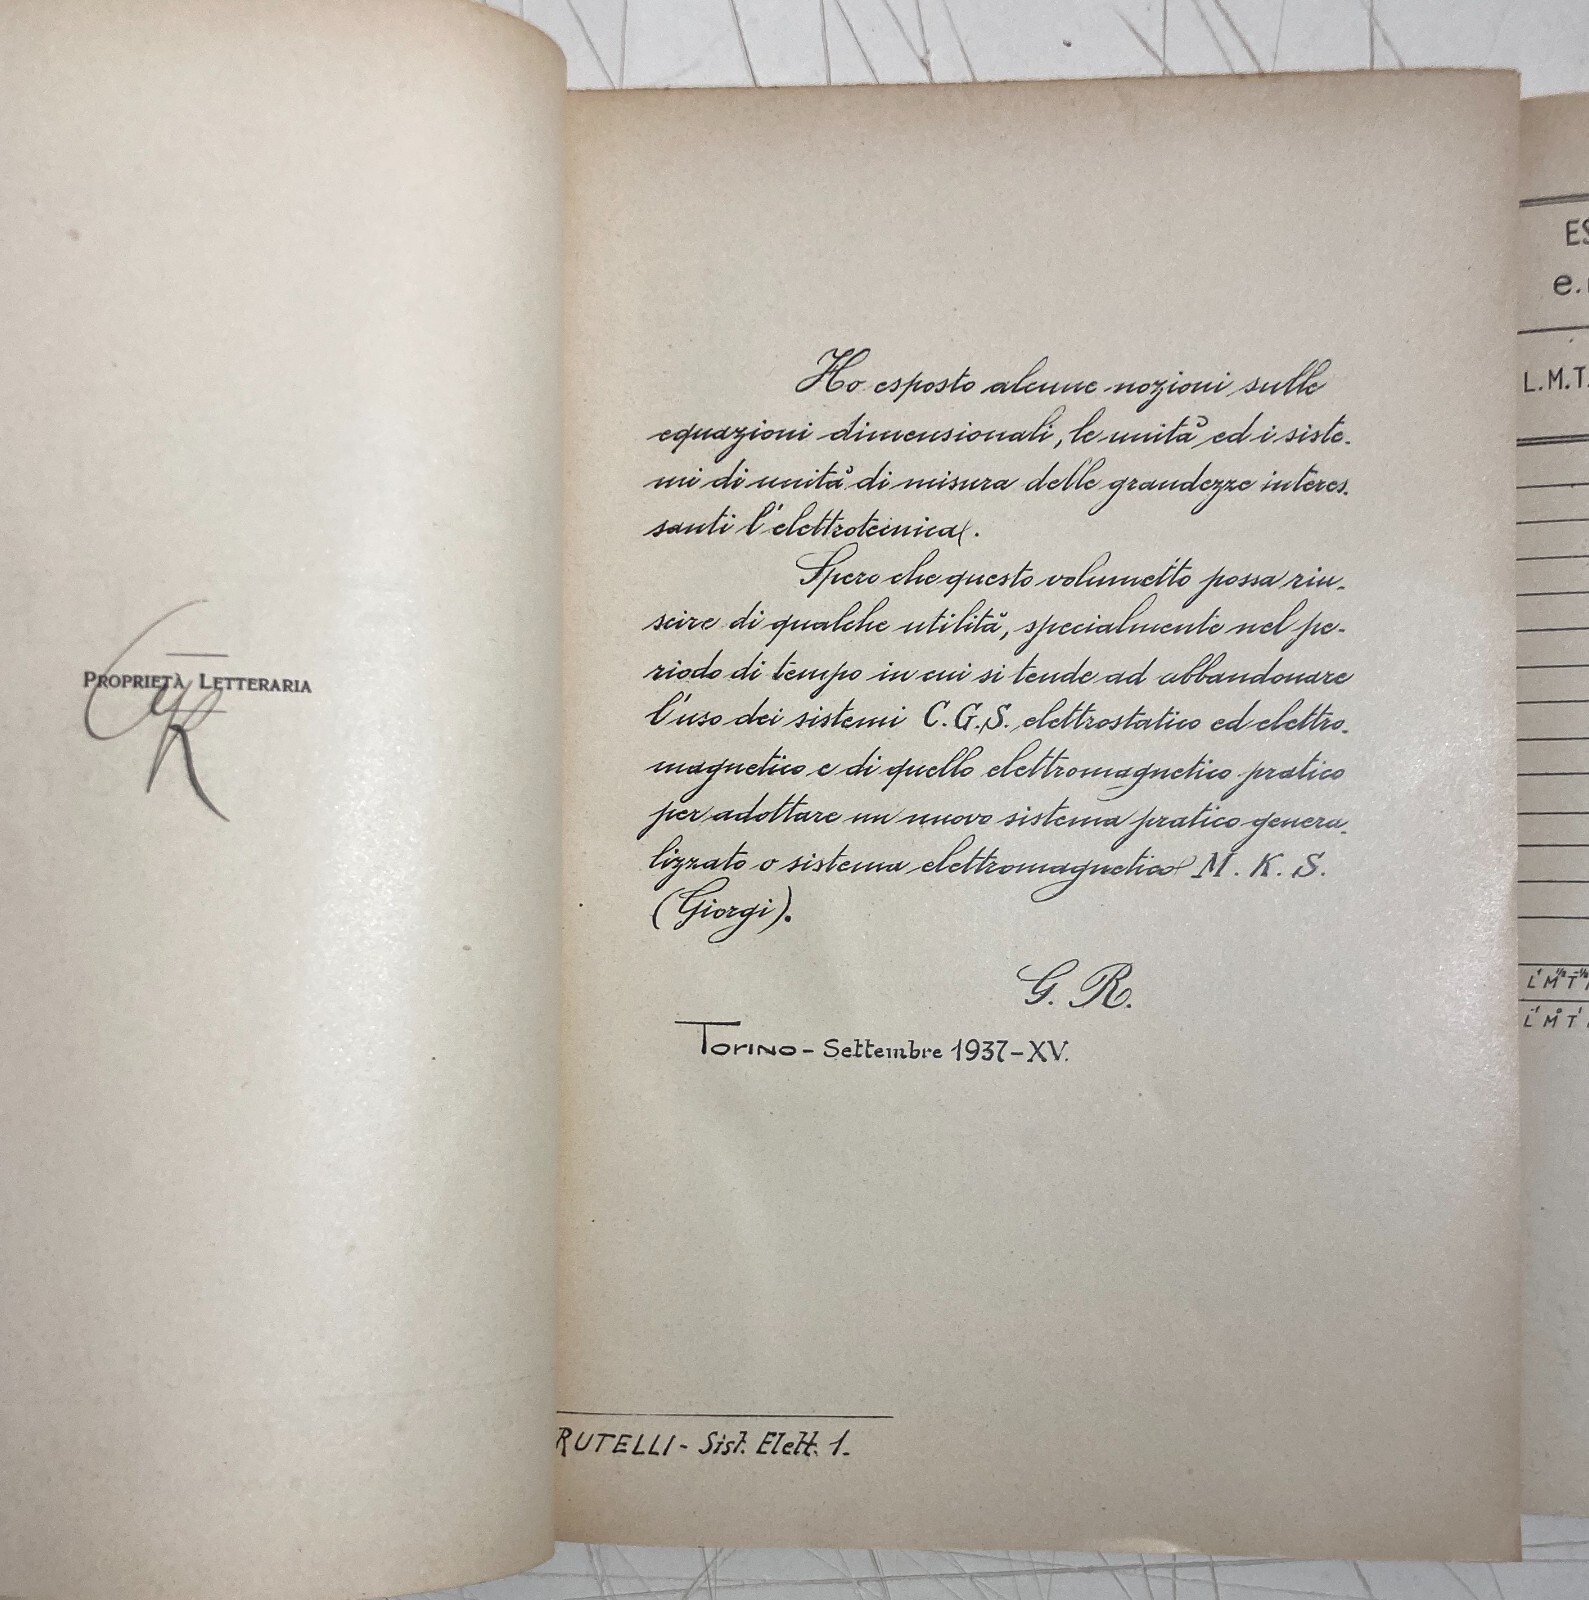 Proprietà Letteraria
GR
Ho esposto alcune nozioni sulle
equazioni dimensionali, le unità ed i siste-
mi di unità di misura delle grandezze interes-
santi l'elettrotecnica.
Spero che questo volumetto possa riu-
scire di qualche utilità, specialmente nel pe-
riodo di tempo in cui si tende ad abbandonare
l'uso dei sistemi C.G.S. elettrostatico ed elettro-
magnetico e di quello elettromagnetico pratico
per adottare un nuovo sistema pratico genera-
lizzato o sistema elettromagnetico M. K. S.
(Giorgi).
G. R.
Torino - Settembre 1937 - XV.
RUTELLI - Sist. Elett. 1.
ES
e.
L.M.T.